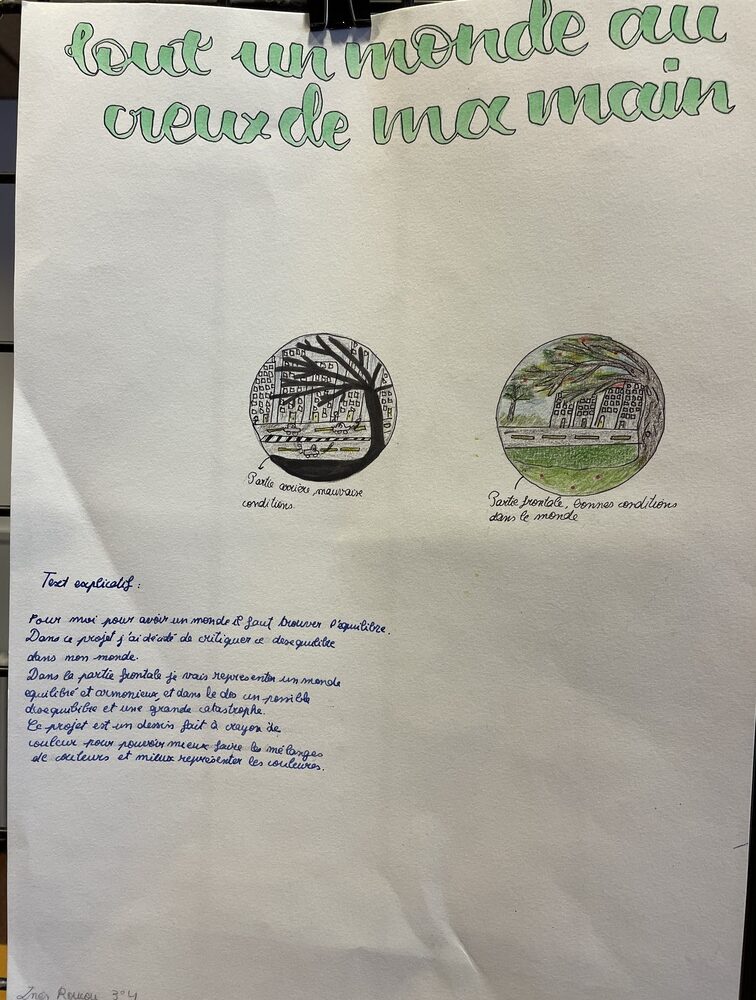 tout un monde au
creux de ma main
Partie arrière mauvaise
conditions
Partie frontale, bonnes conditions
dans le monde
Text explicatif :
Pour moi pour avoir un monde il faut trouver l'équilibre.
Dans ce projet j'ai décidé de critiquer ce desequilibre
dans mon monde.
Dans la partie frontale je vais représenter un monde
equilibré et armonieux et dans le dos un possible
desequilibre et une grande catastrophe.
Ce projet est un dessin fait à crayon de
couleur pour pouvoir mieux faire les mélanges
de couleurs et mieux représenter les couleures.
Ines 3°4